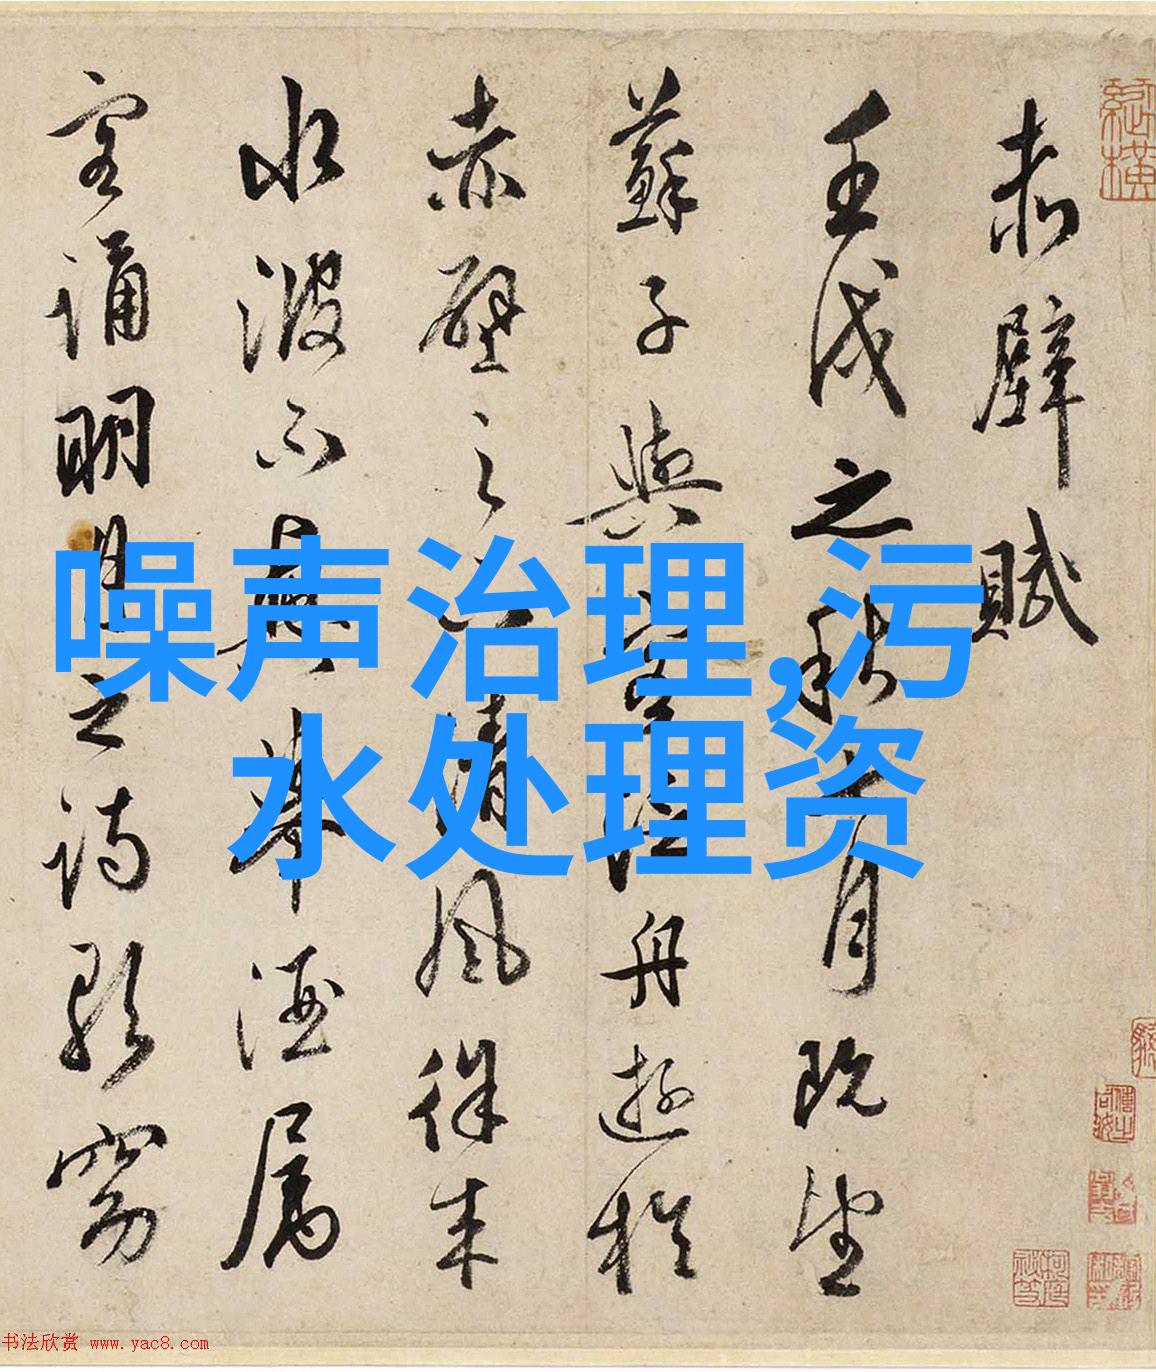 赤壁賦
壬戌之秋七月既望
蘇子與客泛舟遊於
赤壁之下清風徐来
水波不興舉酒属
客誦明月之詩歌窈
噪声治理,污
水处理资
縱橫
书法欣赏 www.yac8.com